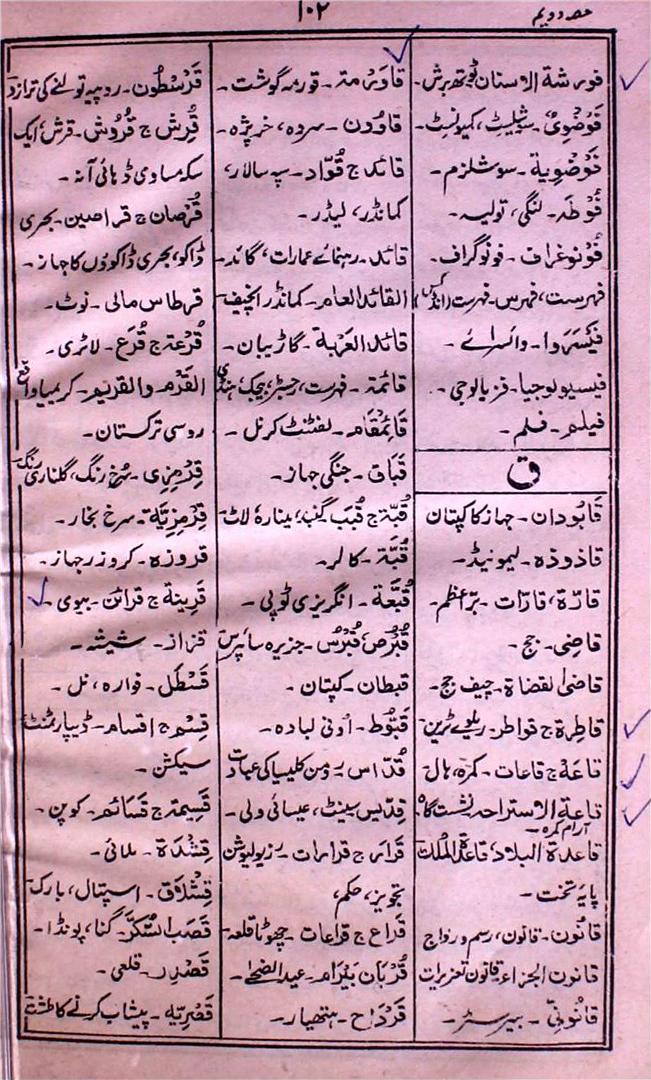 حصہ دویم
۱۰۲
فورشة الاسنان ٹوتھ برش۔
فَوْضَوِیٌ۔ سوشلیسٹ، کمیونسٹ۔
فَوْضَوِیة۔ سوشلزم۔
فُوطَہ۔ لنگی، تولیہ۔
فُوْنُوغراف۔ فونوگراف۔
فہرست، فہرس۔ فہرست (انڈکس)
فَیْسَروا۔ وائسرائے۔
فیسیولوجیا۔ فزیالوجی۔
فیلم۔ فلم۔
ق
قابُودان۔ جہاز کا کپتان
قاذوذہ۔ لیمونیڈ۔
قارّة، قارّات۔ برّاعظم۔
قاضِی۔ جج۔
قاضیُ القضاة۔ چیف جج۔
قاطِرة ج قواطر۔ ریلوے ٹرین۔
قاعَة ج قاعات۔ کمرہ، ہال۔
قاعة الاستراحہ نشست گاہ، آرام کمرہ۔
قاعدة البلاد، قاعدة المُلک
پایہ تخت۔
قانُون۔ قانون، رسم و رواج
قانون الجزاء۔ قانون تعزیرات
قانُونِیّ۔ بیرسٹر۔
قاوَرمة۔ قورمہ گوشت۔
قاوُون۔ سردہ، خرپژہ۔
قائد ج قُوّاد۔ سپہ سالار،
کمانڈر، لیڈر۔
قائد۔ رہنمائے عمارات، گائڈ۔
القائد العام۔ کمانڈر انچیف۔
قائد العَرَبة۔ گاڑیبان۔
قائمة۔ فہرست، رجسٹر، بیجک، ہنڈی
قائمقام۔ لفٹنٹ کرنل۔
قَبَاق۔ جنگی جہاز۔
قُبّة ج قُبَب گنبد، مینارہ لاٹ۔
قَبّة۔ کالر۔
قُبَّعة۔ انگریزی ٹوپی۔
قُبْرُص، قُبْرُس۔ جزیرہ سائپرس
قبطان۔ کپتان۔
قَبُّوط۔ اُونی لبادہ۔
قُدّاس رومن کلیسیا کی عبادت
قِدِّیس سینٹ، عیسائی ولی۔
قَرار ج قرارات۔ رزیولیوشن
تجویز، حکم،
قراع ج قراعات۔ چھوٹا قلعہ۔
قُرْبان بَیْرَام۔ عید الضحےٰ۔
قَرْدَاح۔ ہتھیار۔
قَرَسْطُون۔ روپیہ تولنے کی ترازو
قِرْش ج قُرُوش۔ قرش، ایک
سکہ مساوی ڈہائی آنہ۔
قُرْصان ج قراصین۔ بحری
ڈاکو، بحری ڈاکوؤں کا جہاز۔
قرطاس مالی۔ نوٹ۔
قُرْعة ج قُرَع۔ لاٹری۔
القَرْم والقریم۔ کریمیا واقع
روسی ترکستان۔
قِرْمِزِی۔ سُرخ رنگ، گلناری رنگ۔
قِرْمِزِیَّة۔ سرخ بخار۔
قروزہ۔ کروزر جہاز۔
قَرِینة ج قرائن۔ بیوی۔
قزاز۔ شیشہ۔
قَسْطَل۔ فوارہ، نل۔
قِسْم ج اقسام۔ ڈیپارٹمنٹ
سیکشن۔
قَسِیمة ج قَسائم۔ کوپن۔
قِشْدَة۔ ملائی۔
قِشْلَاق۔ اسپتال، بارک۔
قَصَب السُّکَّر۔ گنا، پونڈا۔
قَصْدِر۔ قلعی۔
قَصْرِیّہ۔ پیشاب کرنے کا طشت